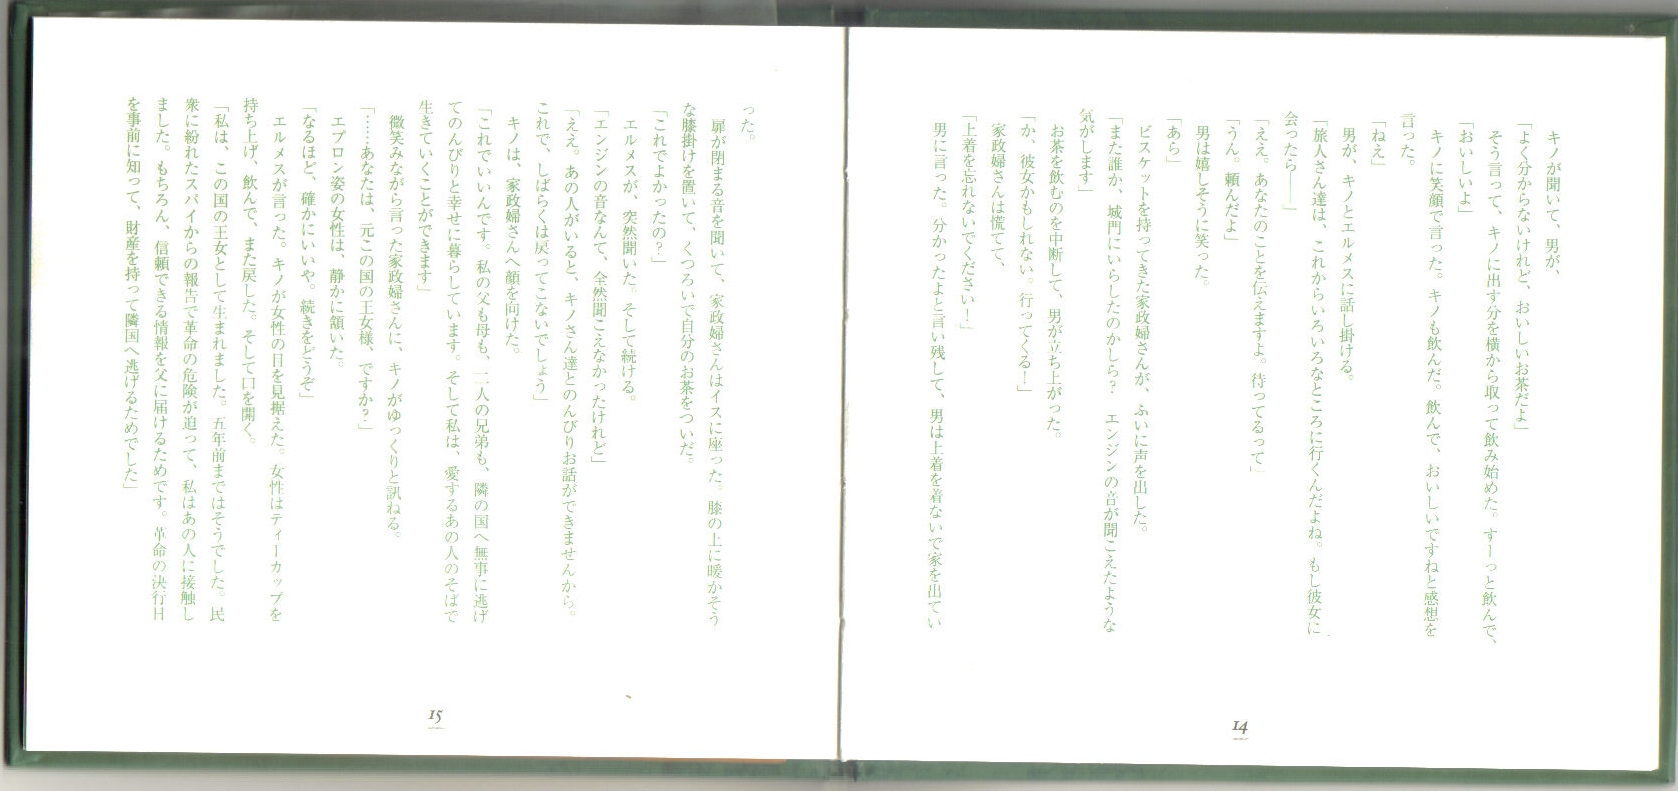 キノが聞いて、男が、
「よく分からないけれど、おいしいお茶だよ」
そう言って、キノに出す分を横から取って飲み始めた。すーっと飲んで、
「おいしいよ」
キノに笑顔で言った。キノも飲んだ。飲んで、おいしいですねと感想を
言った。
「ねえ」
男が、キノとエルメスに話し掛ける。
「旅人さん達は、これからいろいろなところに行くんだよね。もし彼女に
会ったら――」
「ええ。あなたのことを伝えますよ。待ってるって」
「うん。頼んだよ」
男は嬉しそうに笑った。
「あら」
ビスケットを持ってきた家政婦さんが、ふいに声を出した。
「また誰か、城門にいらしたのかしら？　エンジンの音が聞こえたような
気がします」
お茶を飲むのを中断して、男が立ち上がった。
「か、彼女かもしれない。行ってくる！」
家政婦さんは慌てて、
「上着を忘れないでください！」
男に言った。分かったよと言い残して、男は上着を着ないで家を出てい
14
った。
扉が閉まる音を聞いて、家政婦さんはイスに座った。膝の上に暖かそう
な膝掛けを置いて、くつろいで自分のお茶をついだ。
「これでよかったの？」
エルメスが、突然聞いた。そして続ける。
「エンジンの音なんて、全然聞こえなかったけれど」
「ええ。あの人がいると、キノさん達とのんびりお話ができませんから。
これで、しばらくは戻ってこないでしょう」
キノは、家政婦さんへ顔を向けた。
「これでいいんです。私の父も母も、二人の兄弟も、隣の国へ無事に逃げ
てのんびりと幸せに暮らしています。そして私は、愛するあの人のそばで
生きていくことができます」
微笑みながら言った家政婦さんに、キノがゆっくりと訊ねる。
「……あなたは、元この国の王女様、ですか？」
エプロン姿の女性は、静かに頷いた。
「なるほど、確かにいいや。続きをどうぞ」
エルメスが言った。キノが女性の目を見据えた。女性はティーカップを
持ち上げ、飲んで、また戻した。そして口を開く。
「私は、この国の王女として生まれました。五年前まではそうでした。民
衆に紛れたスパイからの報告で革命の危険が迫って、私はあの人に接触し
ました。もちろん、信頼できる情報を父に届けるためです。革命の決行日
を事前に知って、財産を持って隣国へ逃げるためでした」
15